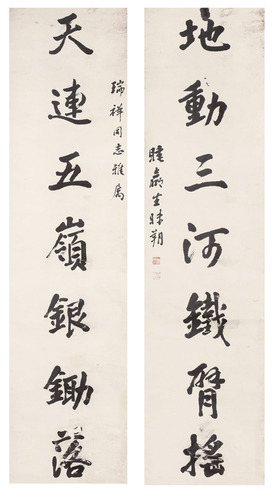 地動三河鐵臂搖
生
朔
瑞祥同志雅屬
天連五嶺銀鋤落